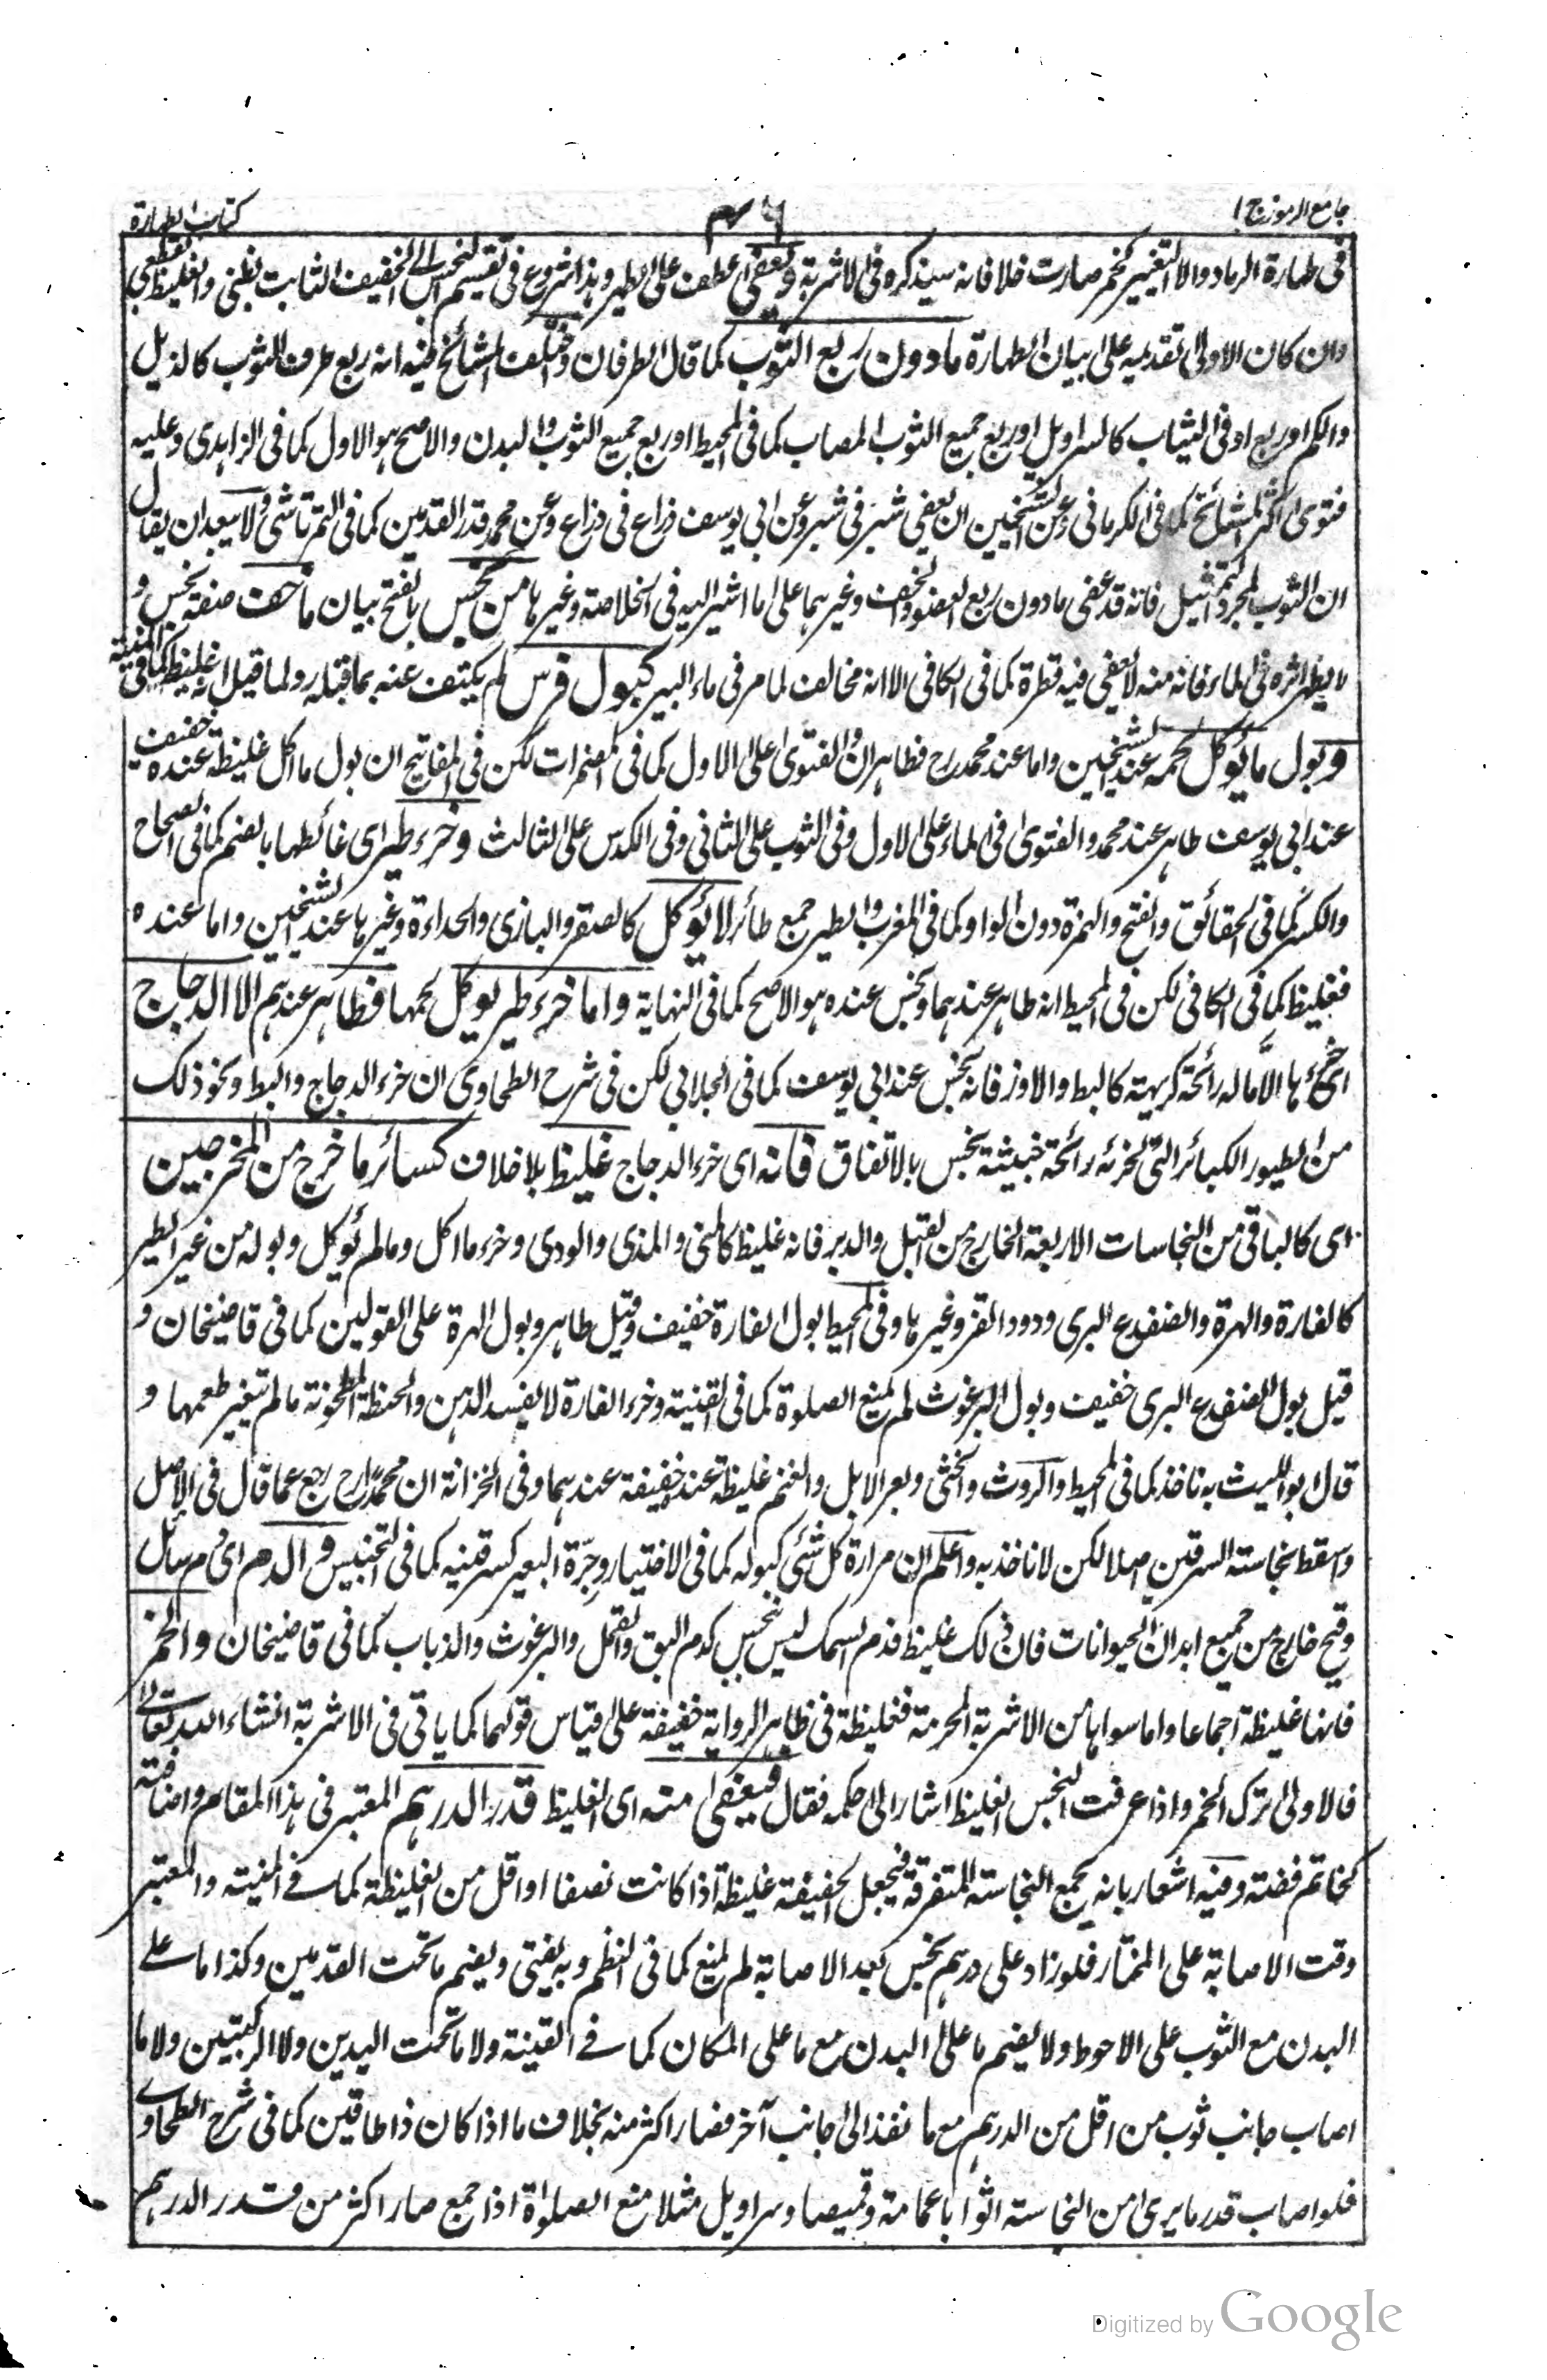 جامع الرموز ج ا
٤٦
كتاب الطهارة
فى طهارة الرماد والا التغيير كخمر صارت خلا فانه سيذكره فى الاشربة ويعفى عطف على يطهر وهذا شروع فى تقسيم النجس الى الخفيف الثابت بظنى والغليظ بقطعى
وان كان الاولى تقديمه على بيان الطهارة ما دون ربع الثوب كما قال الطرفان واختلف المشائخ فيه انه ربع طرف الثوب كالذيل
والكم او ربع ادنى الثياب كالسراويل او ربع جميع الثوب المصاب كما فى المحيط او ربع جميع الثوب والبدن والاصح هو الاول كما فى الزاهدى وعليه
فتوى اكثر المشائخ كما فى الكرمانى وعن الشيخين ان يعفى شبر فى شبر وعن ابى يوسف ذراع فى ذراع وعن محمد قدر القدمين كما فى التمرتاشى ولا يبعد ان يقال
ان الثوب لمجرد التمثيل فانه قد عفى ما دون ربع العضو والخف وغيرهما على ما اشير اليه فى الخلاصة وغيرها من نجس بالفتح بيان ما خف صفة نجس و
لا يظهر اثره فى الماء فانه منه لا يعفى فيه قطرة كما فى الكافى الا انه مخالف لما مر فى ماء البير كبول فرس لم يكتف عنه بما قبله ولما قيل انه غليظ كما فى المنية
وبول ما يؤكل لحمه عند الشيخين واما عند محمد رح فطاهر والفتوى على الاول كما فى المضمرات لكن فى المفاتيح ان بول ما اكل غليظة عنده خفيف
عند ابى يوسف طاهر عند محمد والفتوى فى الماء على الاول وفى الثوب على الثانى وفى الكدس على الثالث وخرء طير اى غائطها بالضم كما فى الصحاح
والكسر كما فى الحقائق والفتح والهمزة دون الواو كما فى المغرب والطير جمع طائر لا يؤكل كالصقر والبازى والحداءة وغيرها عند الشيخين واما عنده
فغليظ كما فى الكافى لكن فى المحيط انه طاهر عندهما ونجس عنده هو الاصح كما فى النهاية واما خرء طير يوكل لحمها فطاهر عندهم الا الدجاج
اى خرءها الا ما له رائحة كريهة كالبط والاوز فانه نجس عند ابى يوسف كما فى الجلابى لكن فى شرح الطحاوى ان خرء الدجاج والبط ونحو ذلك
من الطيور الكبائر التى لخرئه رائحة خبيثة نجس بالاتفاق فانه اى خرء الدجاج غليظ بلا خلاف كسائر ما خرج من المخرجين
اى كالباقى من النجاسات الاربعة الخارج من القبل والدبر فانه غليظ كالمنى والمذى والودى وخرء ما اكل وما لم يؤكل وبوله من غير الطير
كالفارة والهرة والضفدع البرى ودود القز وغيرها وفى المحيط بول الفارة خفيف وقيل طاهر وبول الهرة على القولين كما فى قاضيخان و
قيل بول الضفدع البرى خفيف وبول البرغوث لم يمنع الصلوة كما فى القنية وخرء الفارة لا يفسد الدهن والحنطة المطحونة ما لم تتغير طعمها و
قال ابو الليث به ناخذ كما فى المحيط والروث والخثى وبعر الابل والغنم غليظة عنده خفيفة عندهما وفى الخزانة ان محمدا رح رجع عما قال فى الاصل
واسقط نجاسة السرقين اصلا لكن لا ناخذ به واعلم ان مرارة كل شئى كبوله كما فى الاختيار وجرّة البعير كسرقينه كما فى التجنيس والدم اى دم سائل
وقيح خارج من جميع ابدان الحيوانات فان ذلك غليظ فدم السمك ليس بنجس كدم البق والقمل والبرغوث والذباب كما فى قاضيخان والخمر
فانها غليظة اجماعا واما سواها من الاشربة المحرمة فغليظة فى ظاهر الرواية خفيفة على قياس قولهما كما ياتى فى الاشربة انشاء الله تعالى
فالاولى ترك الخمر واذا عرفت النجس الغليظ اشار الى حكمه فقال فيعفى منه اى الغليظ قدر الدرهم المعتبر فى هذا المقام واضافته
كخاتم فضة وفيه اشعار بانه يجمع النجاسة المتفرقة فيجعل الخفيفة غليظة اذا كانت نصفا او اقل من الغليظة كما فى المنية والمعتبر
وقت الاصابة على المختار فلو زاد على درهم نجس بعد الاصابة لم يمنع كما فى النظم وبه يفتى ويضم ما تحت القدمين وكذا ما على
البدن مع الثوب على الاحوط ولا يضم ما على البدن مع ما على المكان كما فى القنية ولا ما تحت اليدين ولا الركبتين ولا ما
اصاب جانب ثوب من اقل من الدرهم مع ما نفذ الى جانب آخر فصار اكثر منه بخلاف ما اذا كان ذا طاقين كما فى شرح الطحاوى
فلو اصاب قدر ما يرى من النجاسة اثوابا عمامة وقميصا وسراويل مثلا منع الصلوة اذا جمع صار اكثر من قدر الدرهم
Digitized by Google